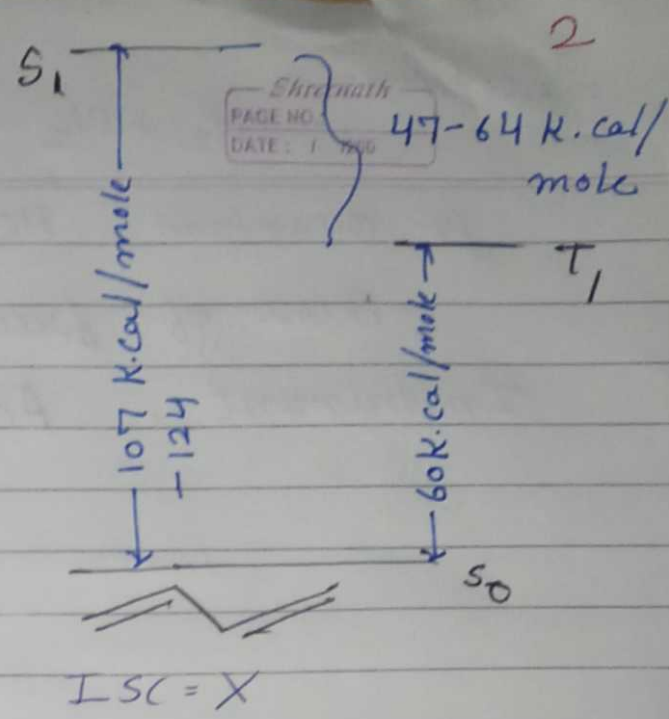 2
S₁
Shreenath
PAGE NO.
DATE: /
47-64 K.cal/
mole
T₁
107 K.cal/mole
-124
60K.cal/mole
S₀
ISC = X